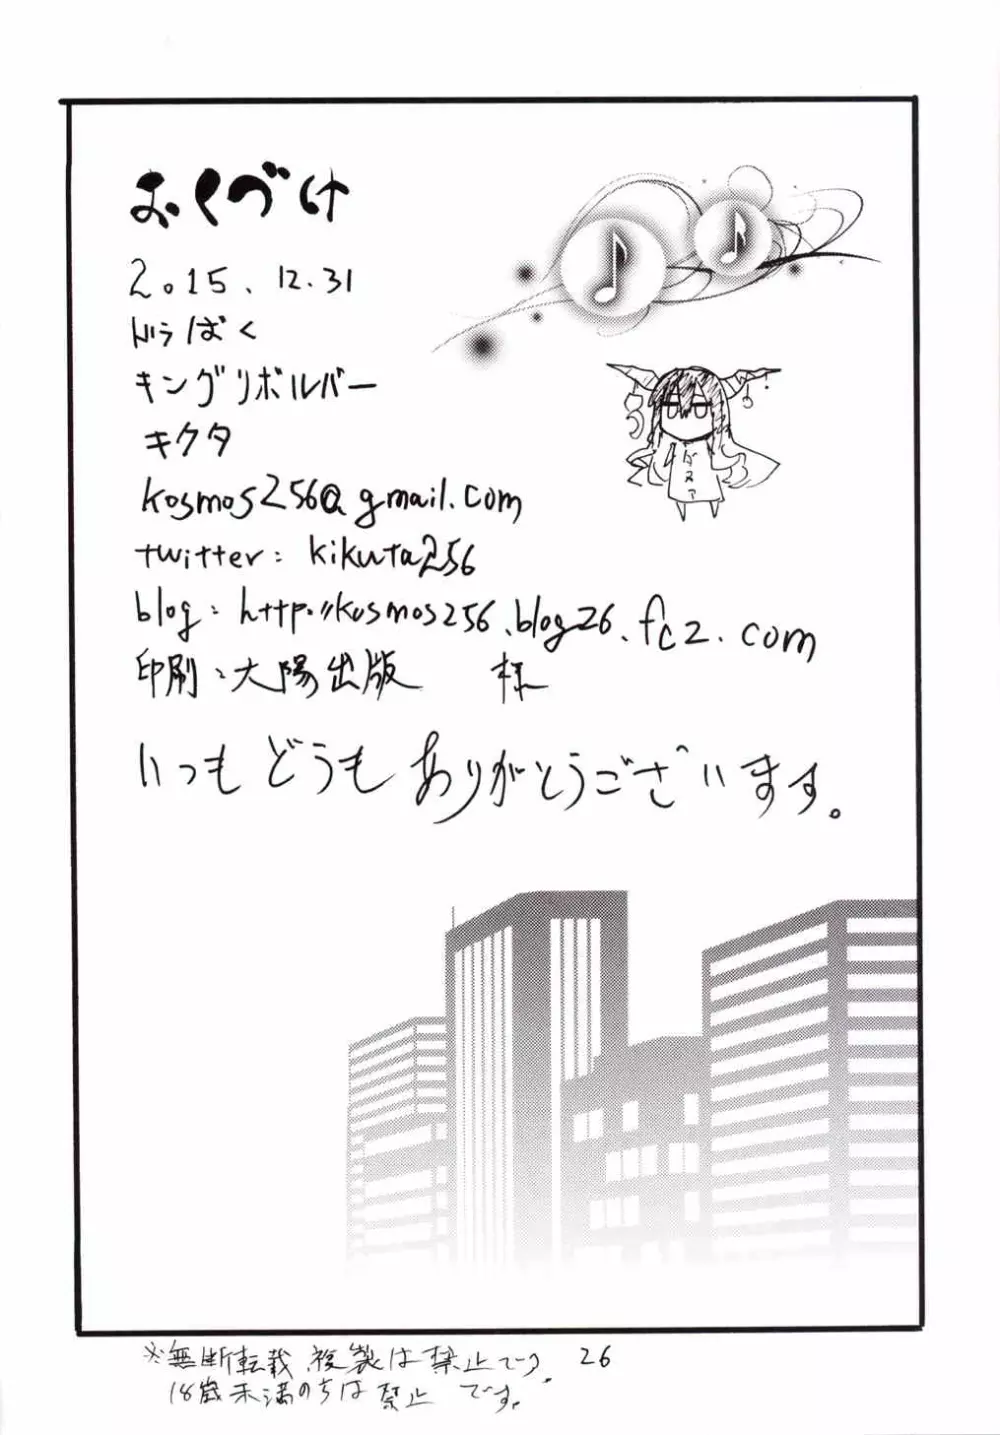 おくづけ
2015.12.31
ドラばく
キングリボルバー
キクタ
kosmos256@gmail.com
twitter: kikuta256
blog: http://kosmos256.blog26.fc2.com
印刷:大陽出版 様
いつもどうもありがとうございます。
※無断転載、複製は禁止です。
18歳未満の方は禁止です。
26